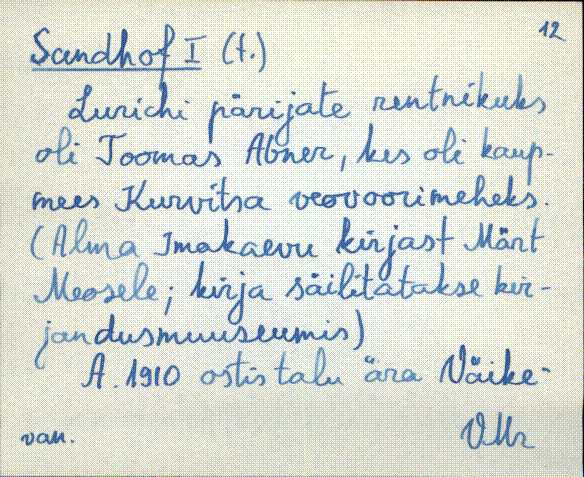 12
Sandhof I (t.)
Lurichi pärijate rentnikuks
oli Toomas Abner, kes oli kaup-
mees Kurvitsa veovoorimeheks.
(Alma Imakaevu kirjast Märt
Meosele; kirja säilitatakse kir-
jandusmuuseumis)
A. 1910 ostis talu ära Väike-
van. VMr